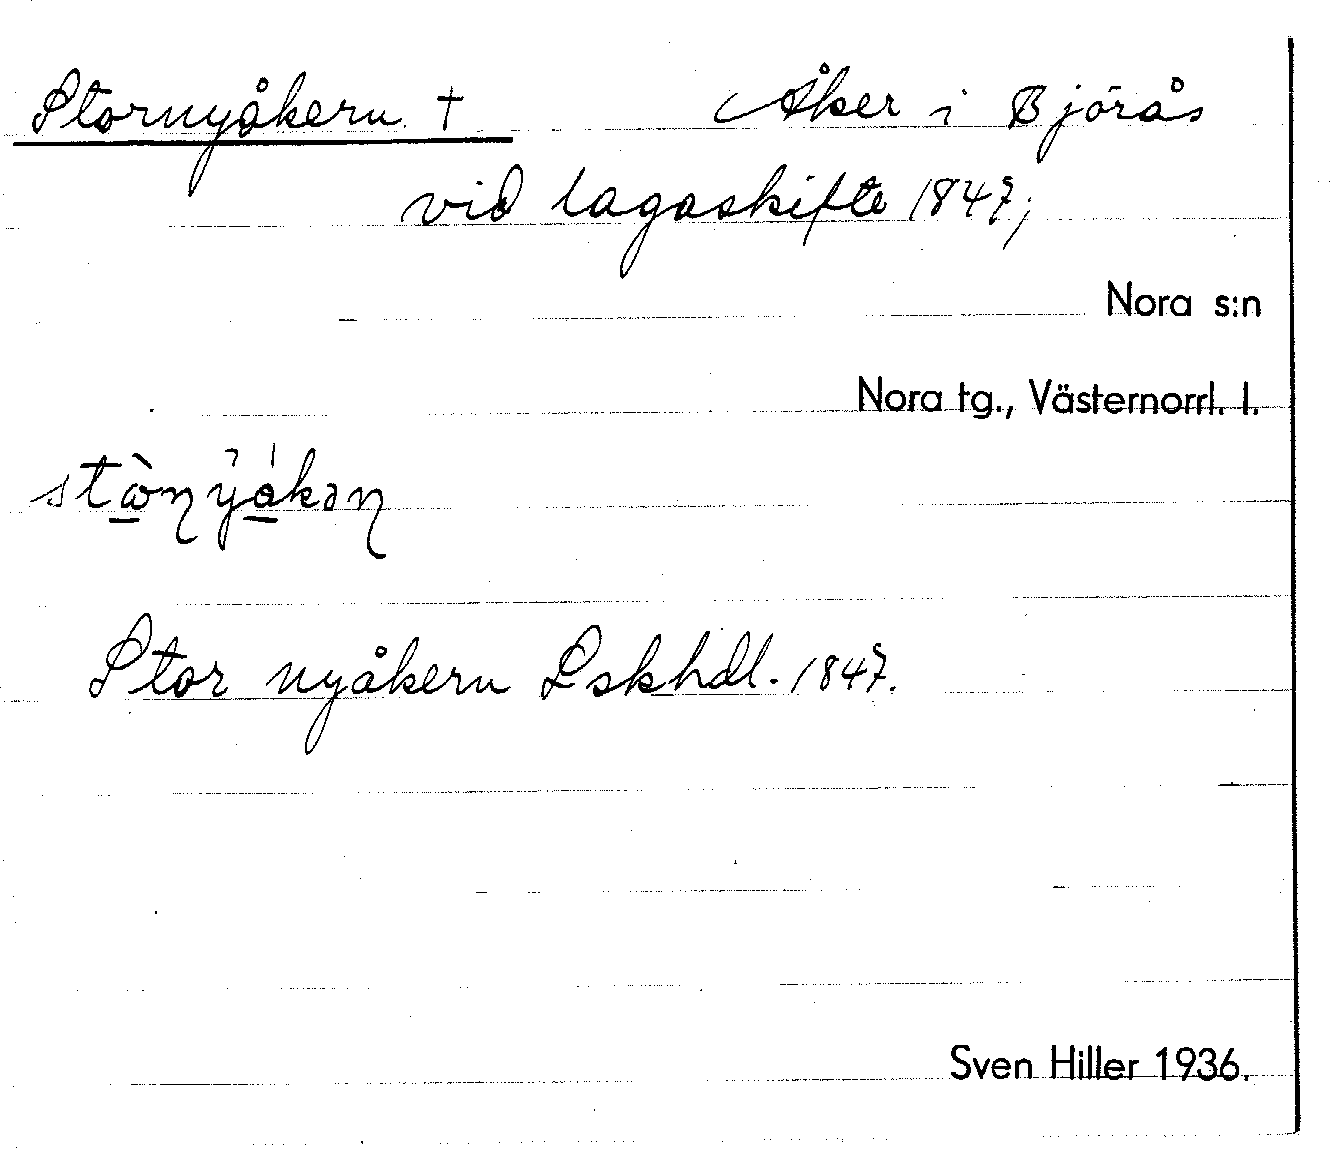 Stornyåkern † Åker i Björås
vid lagaskifte 1847;
Nora s:n
Nora tg., Västernorrl. l.
Stor nyåkern Lskhdl. 1847.
Sven Hiller 1936.